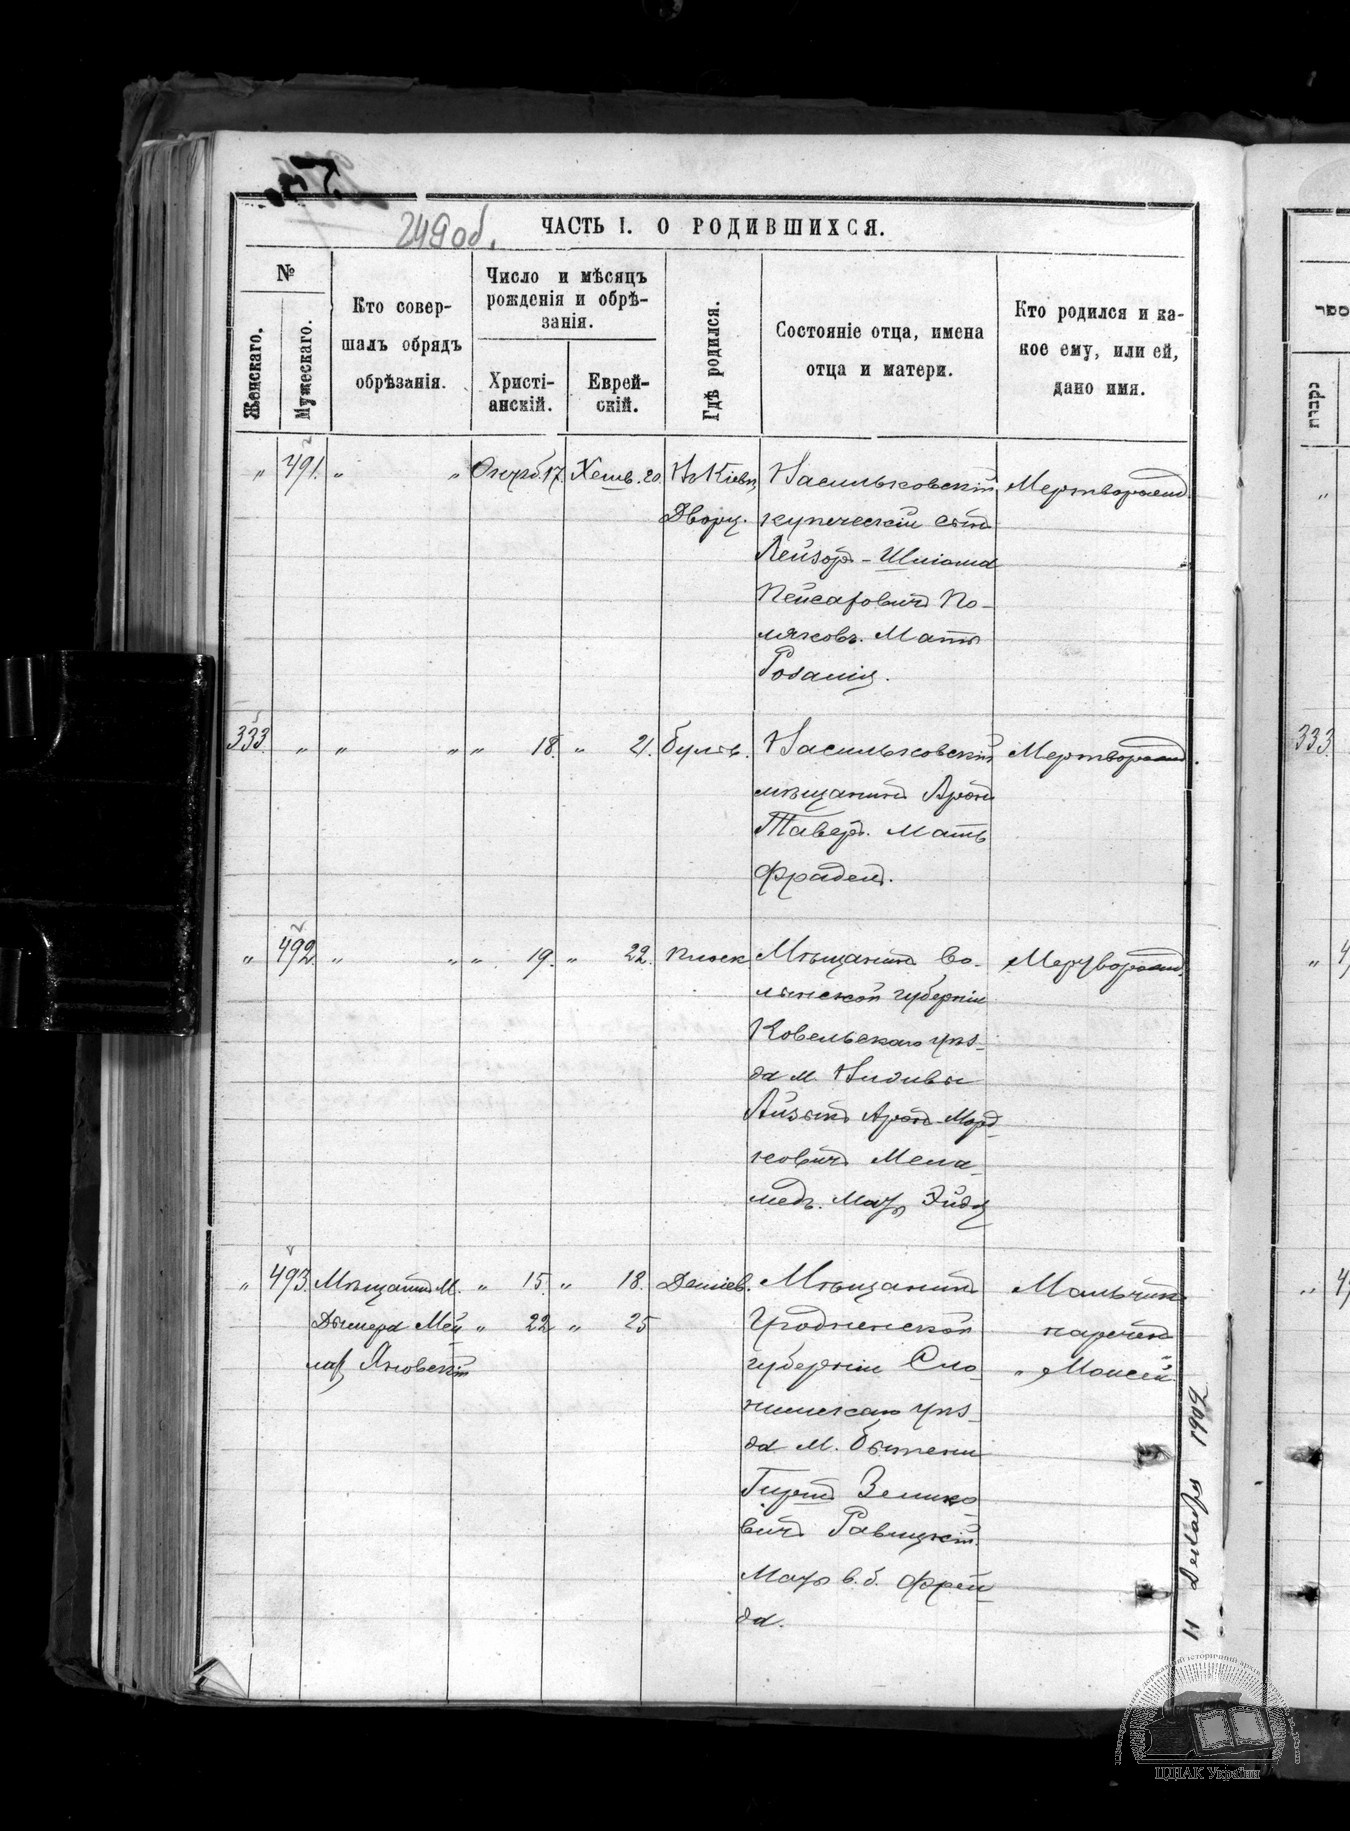 249 об.
ЧАСТЬ I. О РОДИВШИХСЯ.
№
Женскаго.
Мужескаго.
Кто совер-
шалъ обрядъ
обрѣзанія.
Число и мѣсяцъ
рожденія и обрѣ-
занія.
Христі-
анскій.
Еврей-
скій.
Гдѣ родился.
Состояніе отца, имена
отца и матери.
Кто родился и ка-
кое ему, или ей,
дано имя.
" 491. " " Октяб. 17. Хешв. 20.
Дворц.
Васильковскій
купеческій сынъ
Лейзоръ-Шліома
Пейсаховичъ По-
ляковъ. Мать
Розалія.
Мертворожд.
333. " " " " 18. " 21. Бульв.
Васильковскій
мѣщанинъ Аронъ
Таверъ. Мать
Фрадель.
Мертворожд.
" 492. " " " 19. " 22. Плоск.
Мѣщанинъ Во-
лынской губерніи
Ковельскаго уѣз-
да м.
Айзыкъ Аронъ-Морд-
ковичъ Мела-
медъ. Мать Эйдя
Мертворожд.
" 493. Мѣщанинъ М. " 15. " 18.
Дымера Мей " 22 " 25
лах Яновскій
Мѣщанинъ
Гродненской
губерніи Сло-
нимскаго уѣз-
да м. Бытени
Гиршъ Зелико-
вичъ Равицкій.
Мать в.б. Фрей-
да.
Мальчикъ
нареченъ
" Моисей "
11 Декабря 1902
333
ЦДІАК України